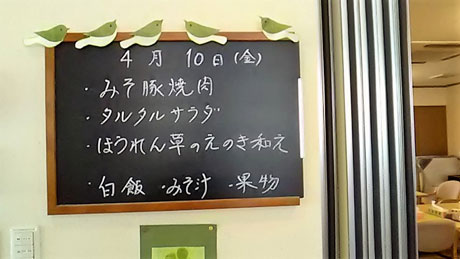 4月10日(金)
・みそ豚焼肉
・タルタルサラダ
・ほうれん草のえのき和え
・白飯 ・みそ汁 ・果物